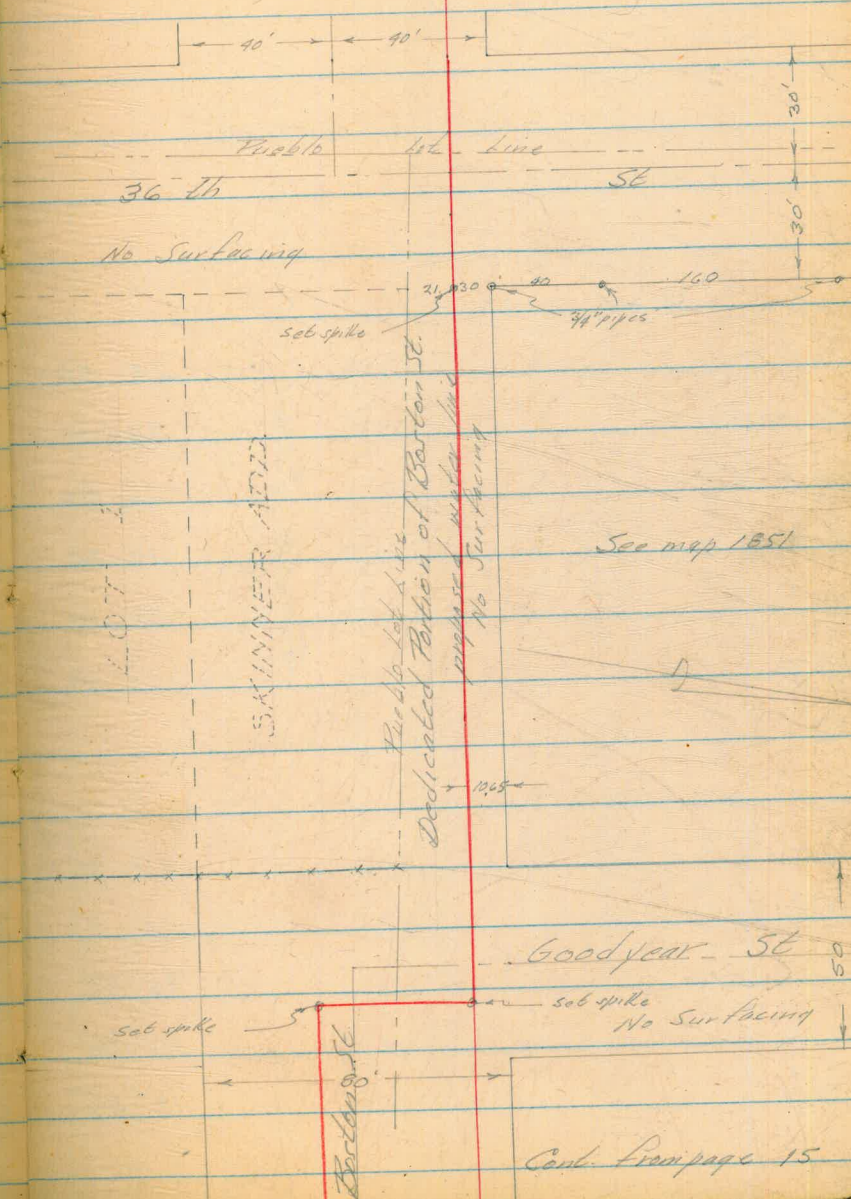 40' 40'
30'
Pueblo Lot Line
36 th St
30'
No Surfacing
21 30 40 160
set spike
3/4" pipes
LOT 1
SKINNER ADD.
Pueblo Lot Line
Dedicated Portion of Boston St.
proposed water line
No Surfacing
See map 1851
10.65
Goodyear St
50
set spike
set spike
No Surfacing
80'
Boston St
Cont. from page 15